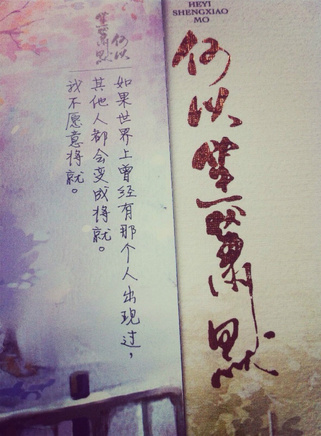 HEYI
SHENGXIAO
MO
何以笙箫默
何以
笙萧默
如果世界上曾经有那个人出现过，
其他人都会变成将就。
我不愿意将就。